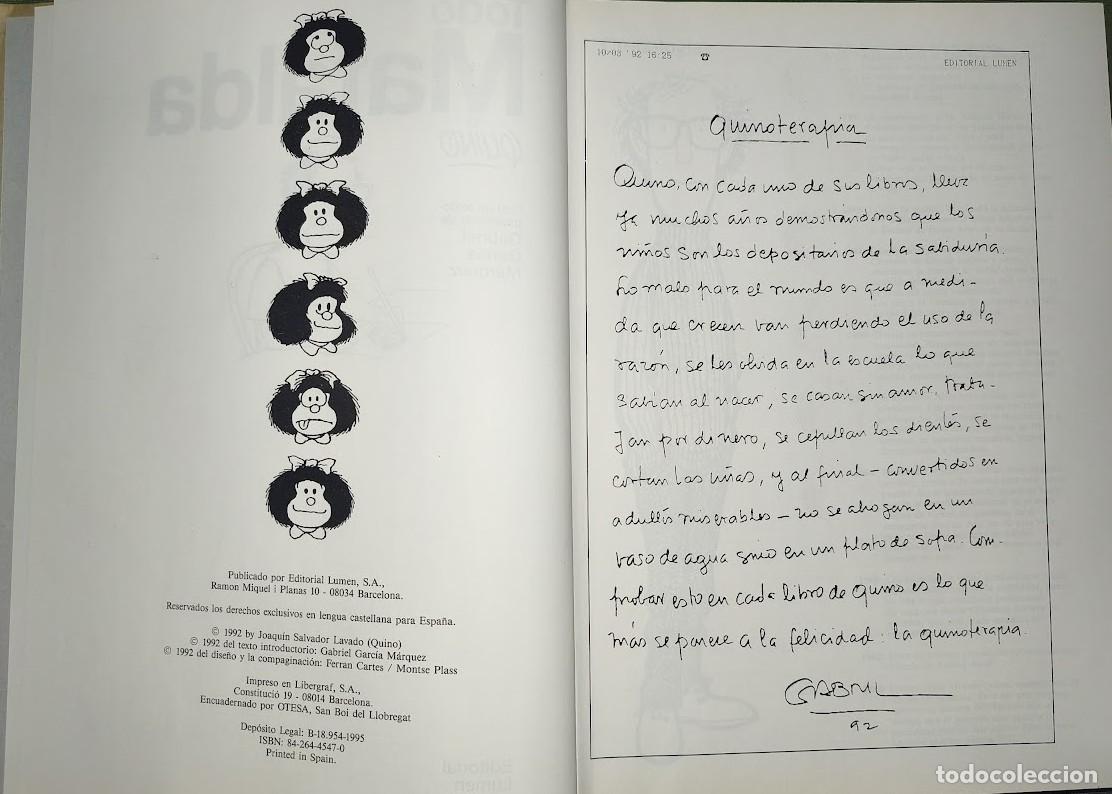 Publicado por Editorial Lumen, S.A.,
Ramon Miquel i Planas 10 - 08034 Barcelona.
Reservados los derechos exclusivos en lengua castellana para España.
© 1992 by Joaquín Salvador Lavado (Quino)
© 1992 del texto introductorio: Gabriel García Márquez
© 1992 del diseño y la compaginación: Ferran Cartes / Montse Plass
Impreso en Libergraf, S.A.,
Constitució 19 - 08014 Barcelona.
Encuadernado por OTESA, San Boi del Llobregat
Depósito Legal: B-18.954-1995
ISBN: 84-264-4547-0
Printed in Spain.
10/03 '92 16:25 ☎ EDITORIAL LUMEN
Quinoterapia
Quino, con cada uno de sus libros, lleva
ya muchos años demostrándonos que los
niños son los depositarios de la sabiduría.
Lo malo para el mundo es que a medi-
da que crecen van perdiendo el uso de la
razón, se les olvida en la escuela lo que
sabían al nacer, se casan sin amor, traba-
jan por dinero, se cepillan los dientes, se
cortan las uñas, y al final - convertidos en
adultos miserables - no se ahogan en un
vaso de agua sino en un plato de sopa. Com-
probar esto en cada libro de Quino es lo que
más se parece a la felicidad: la quinoterapia.
GABRIEL
92
todocoleccion